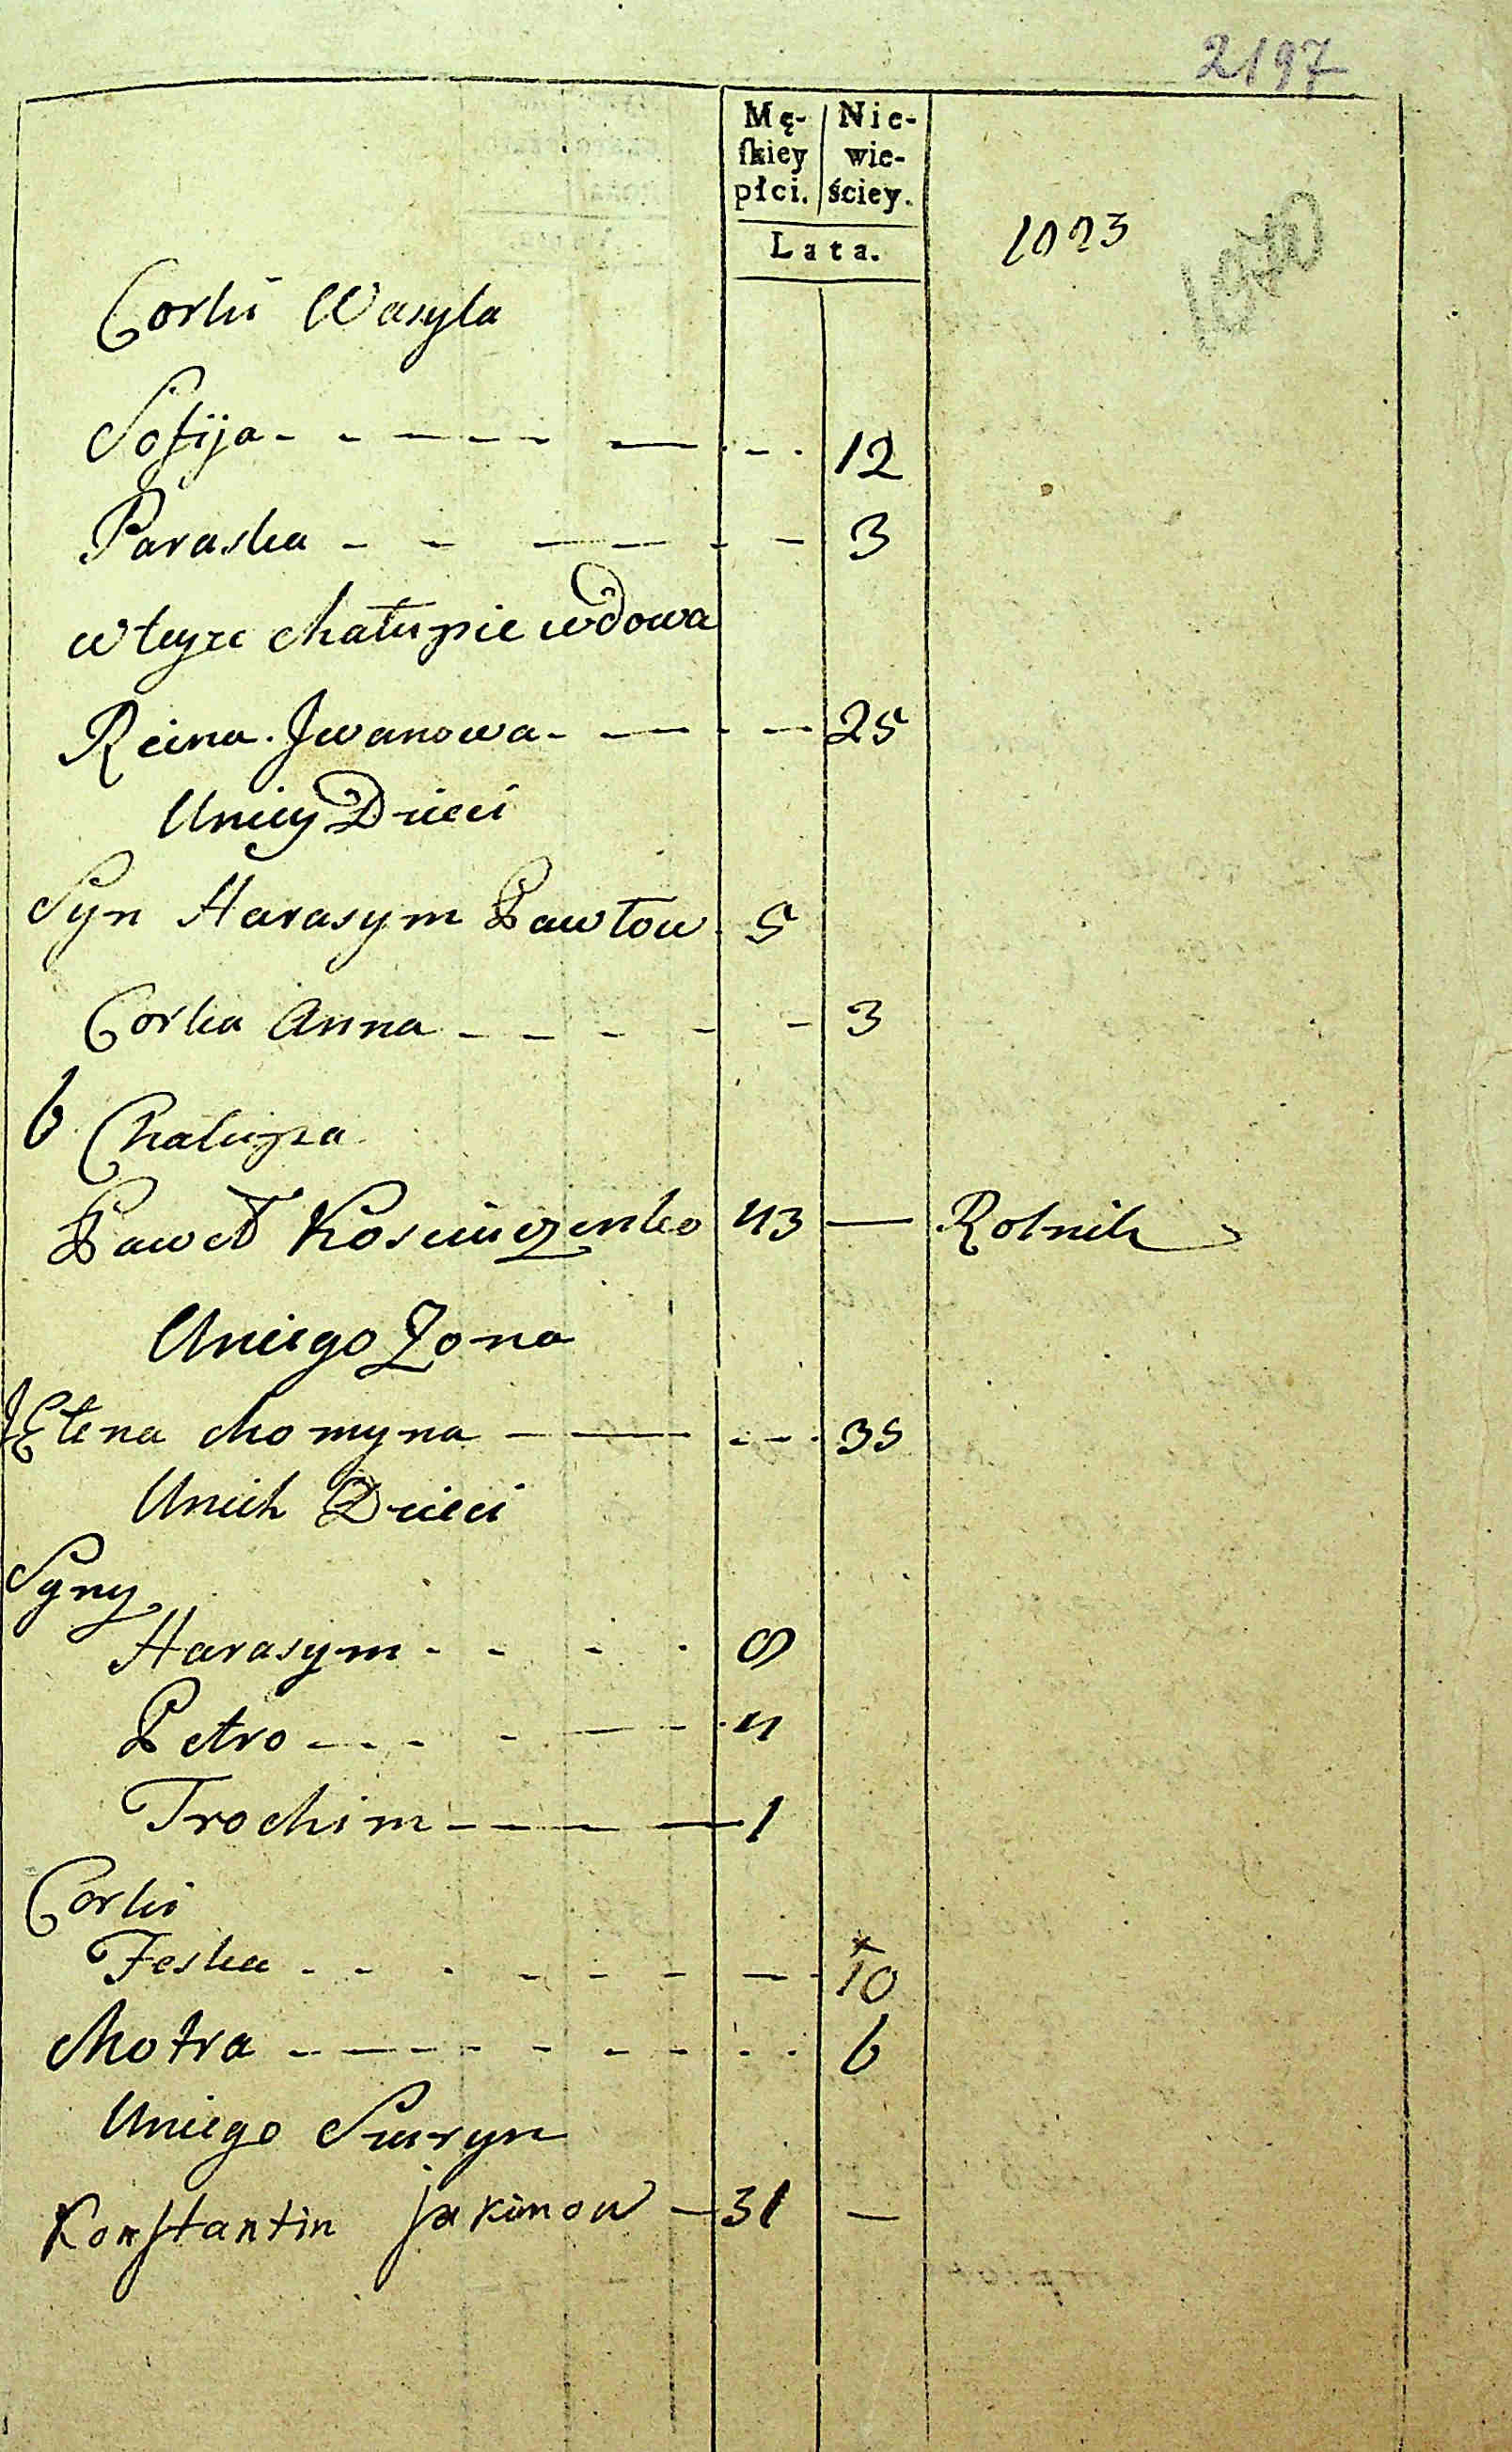 2197
Mę- Nie-
ſkiey wie-
płci. ściey.
Lata.
1023
Corki Wasyla
Sofija 12
Paraska 3
w teyze Chałupie wdowa
Reina Jwanowa 25
Uniey Dzieci
Syn Harasym Pawłow 5
Corka Anna 3
6 Chalupa
Paweł 43 Rolnik
Uniego Zona
Elena Chomyna 35
Unich Dzieci
Syny
Harasym 8
Petro 4
Trochim 1
Corki
Feska 10
Motra 6
Uniego Suryn
Konſtantin Jakimow 31